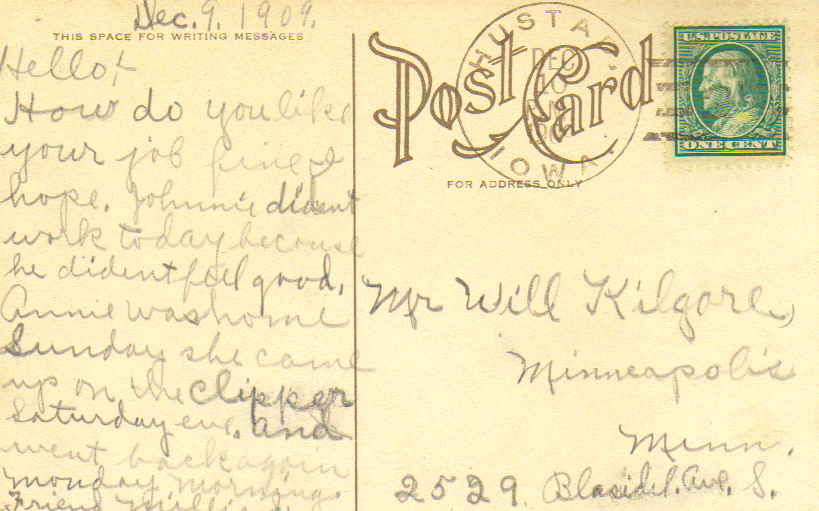 Dec. 9. 1909.
THIS SPACE FOR WRITING MESSAGES
Hello!
How do you like
your job fine I
hope. Johnnie dident
work today because
he dident feel good.
Annie was home
Sunday she came
up on the clipper
Saturday eve. and
went back again
monday morning.
Friend
Post Card
HUSTA
DEC
10
IOWA.
U.S. POSTAGE
ONE CENT
FOR ADDRESS ONLY
Mr Will Kilgore,
Minneapolis
Minn.
2529 Blaisdel. Ave. S.